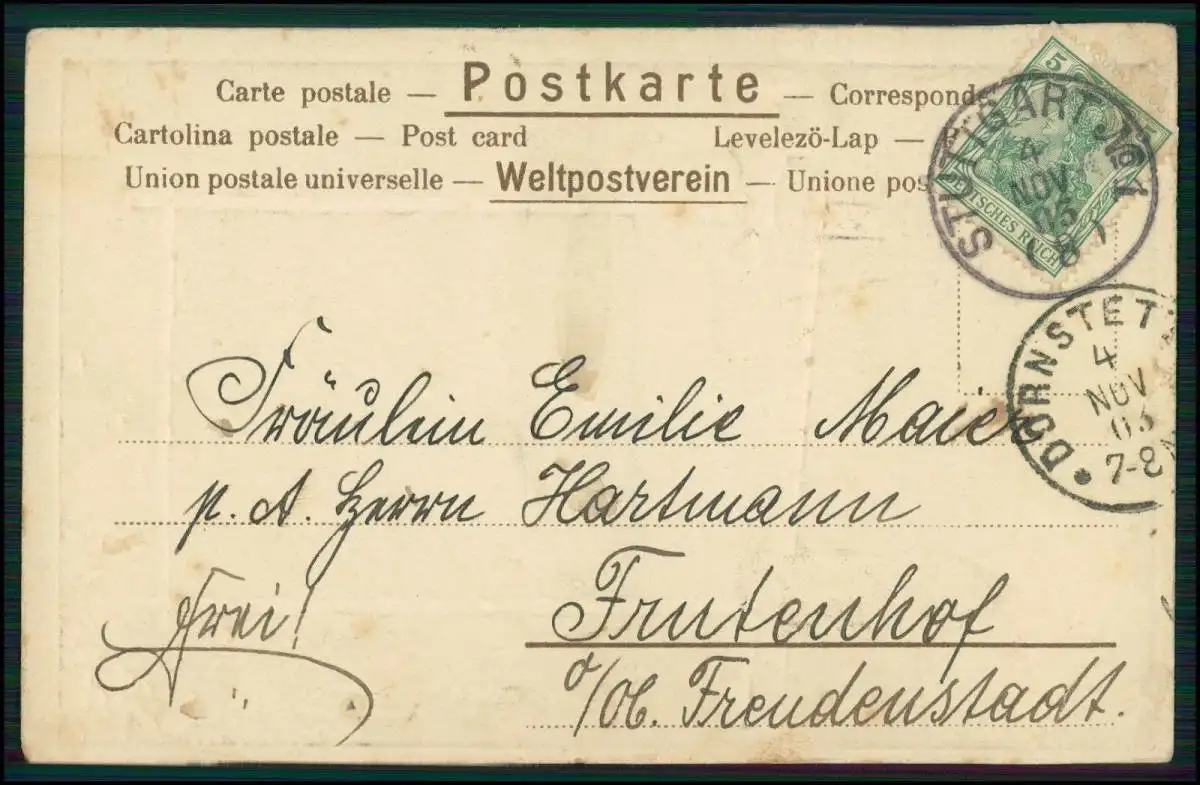 Postkarte
Carte postale — — Corresponde
Cartolina postale — Post card Levelezö-Lap —
Union postale universelle — Weltpostverein — Unione pos
5 5
DEUTSCHES REICH
STUTTGART No 1
4
NOV
03
8
DORNSTET
4
NOV
03
7-8N
Fräulein Emilie Maier
p. A. Herrn Hartmann
Frutenhof
frei!
o/Ob. Freudenstadt.